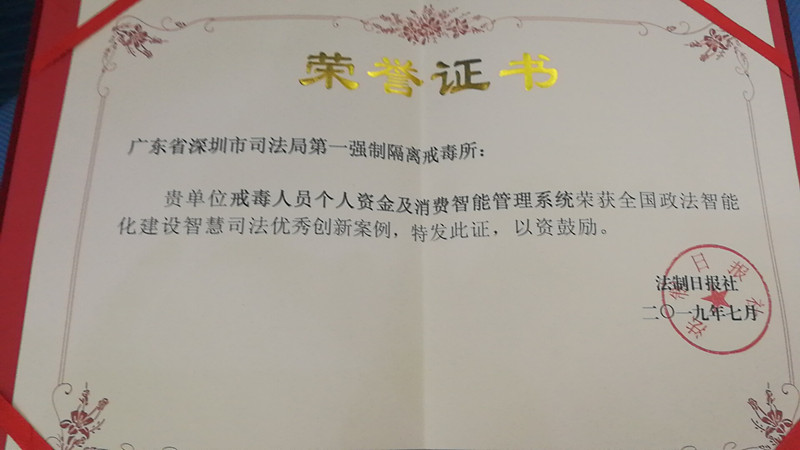 荣誉证书
广东省深圳市司法局第一强制隔离戒毒所：
贵单位戒毒人员个人资金及消费智能管理系统荣获全国政法智能
化建设智慧司法优秀创新案例，特发此证，以资鼓励。
法制日报社
法制日报社
二〇一九年七月